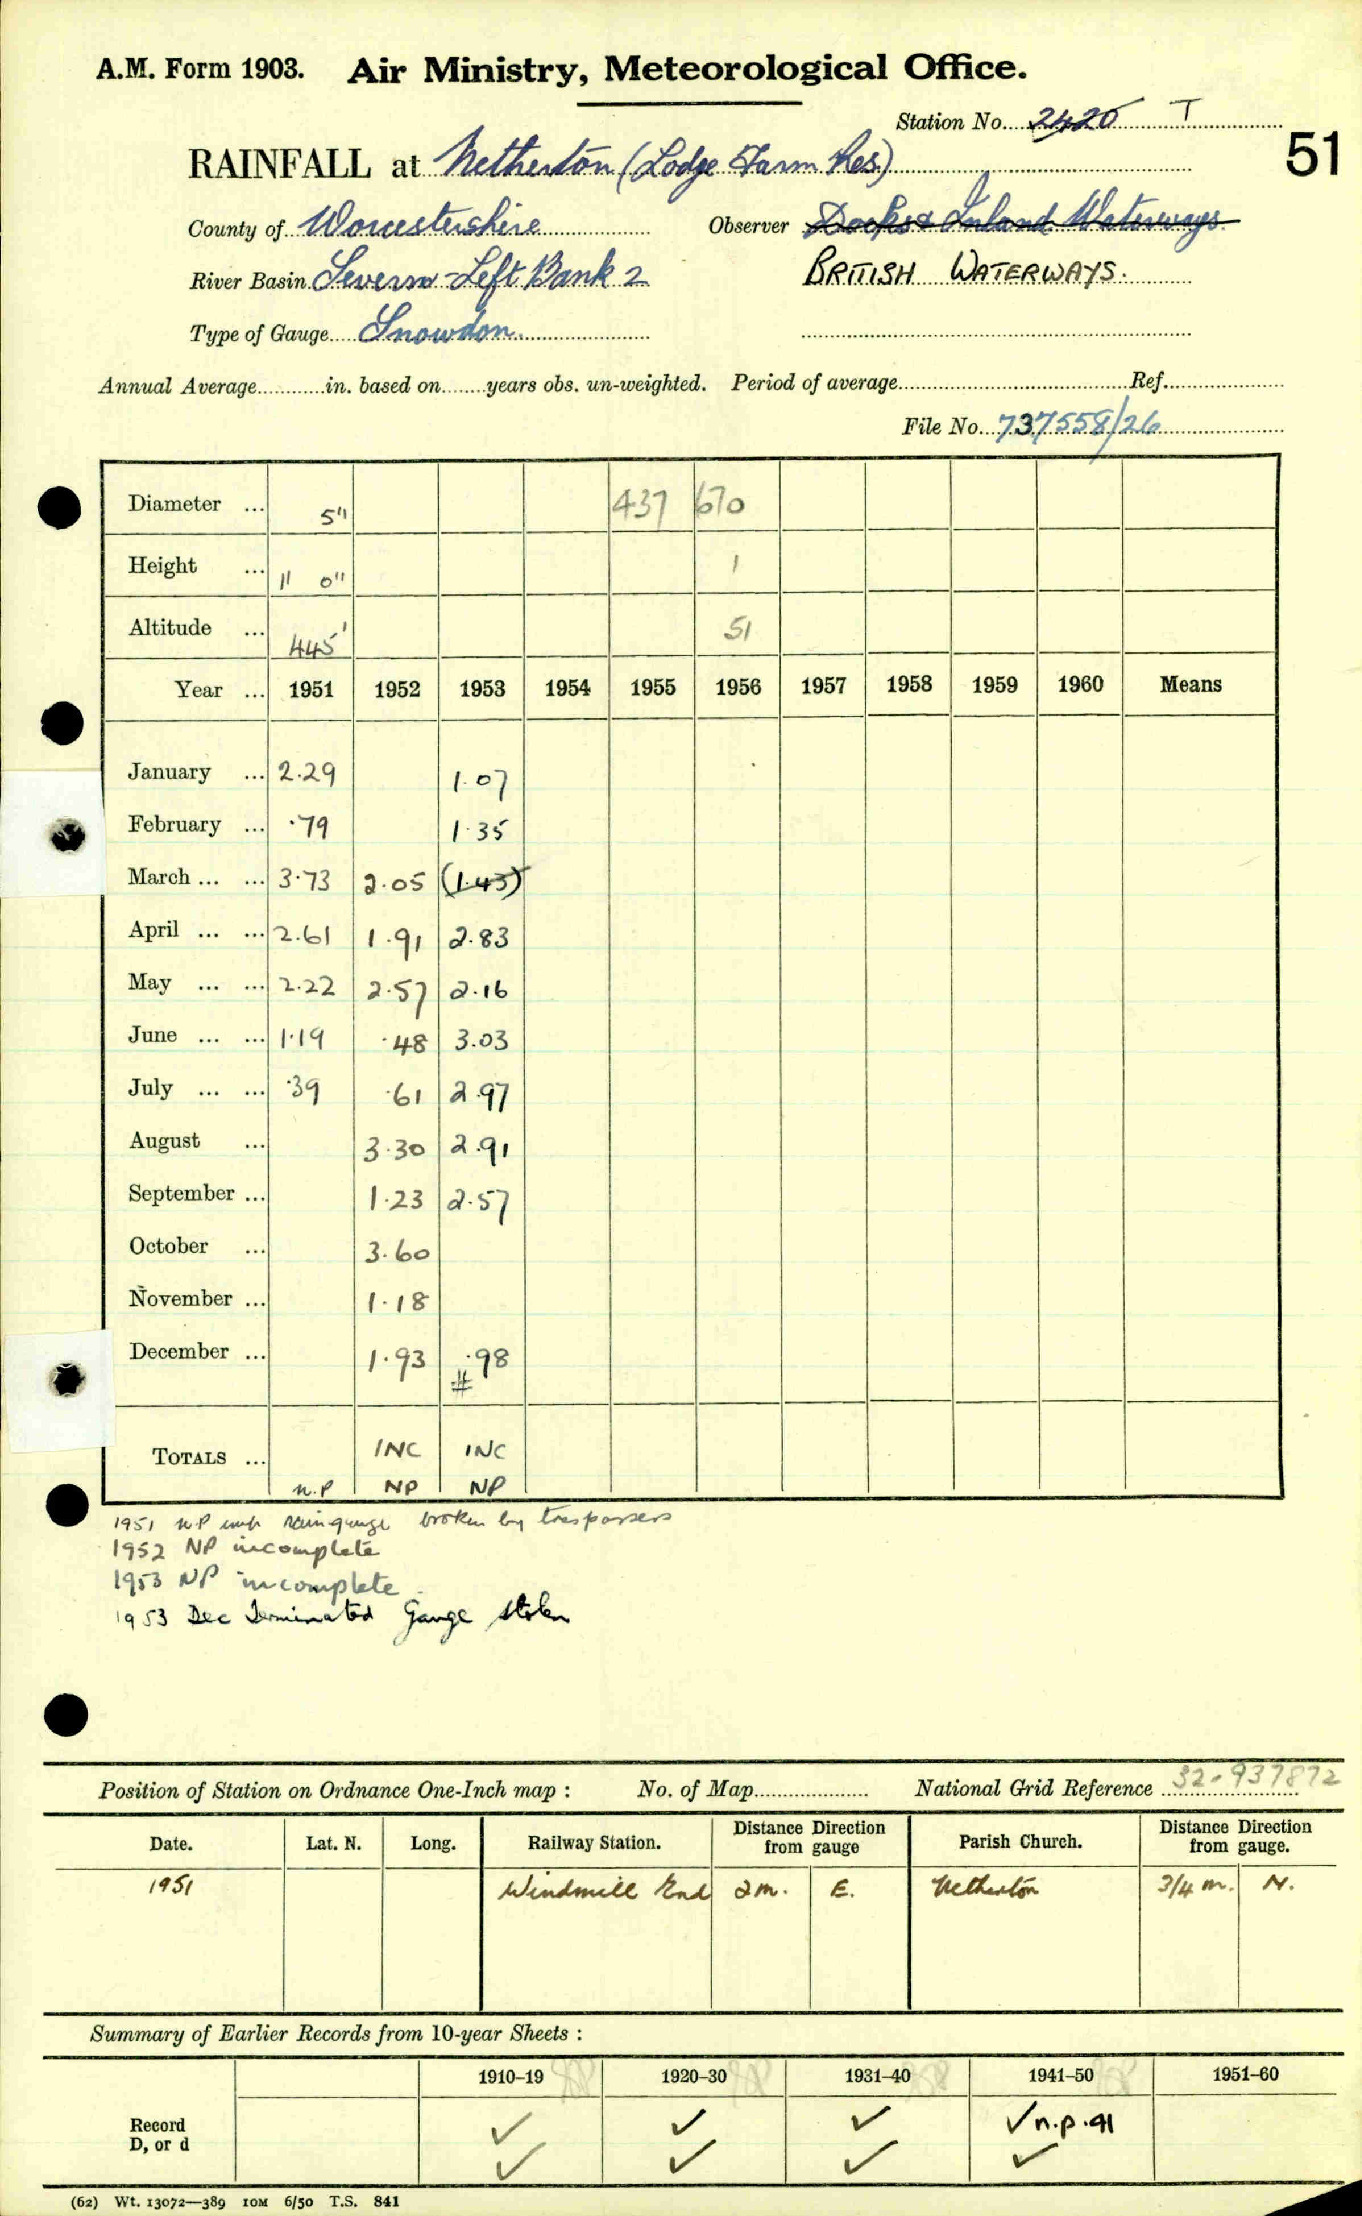 A.M. Form 1903. Air Ministry, Meteorological Office.
Station No. 2420 T
51
RAINFALL at Netherton (Lodge Farm Res)
County of Worcestershire Observer Docks & Inland Waterways.
River Basin Severn - Left Bank 2 BRITISH WATERWAYS.
Type of Gauge Snowdon
Annual Average............in. based on........years obs. un-weighted. Period of average............Ref............
File No. 737558/26
Diameter ... 5" 437 670
Height ... 1' 0" 1
Altitude ... 445' 51
Year ... 1951 1952 1953 1954 1955 1956 1957 1958 1959 1960 Means
January ... 2.29 1.07
February ... .79 1.35
March ... ... 3.73 2.05 (1.43)
April ... ... 2.61 1.91 2.83
May ... ... 2.22 2.57 2.16
June ... ... 1.19 .48 3.03
July ... ... .39 .61 2.97
August ... 3.30 2.91
September ... 1.23 2.57
October ... 3.60
November ... 1.18
December ... 1.93 .98
#
TOTALS ... INC INC
n.P NP NP
1951 NP raingauge broken by trespassers
1952 NP incomplete
1953 NP incomplete
1953 Dec Terminated Gauge stolen
Position of Station on Ordnance One-Inch map : No. of Map............ National Grid Reference 32-937872
Date. Lat. N. Long. Railway Station. Distance from Direction gauge Parish Church. Distance from Direction gauge.
1951 Windmill End 2m. E. Netherton 3/4 m. N.
Summary of Earlier Records from 10-year Sheets :
1910–19 1920–30 1931–40 1941–50 1951–60
Record ✓ ✓ ✓ ✓ n.p.41
D, or d ✓ ✓ ✓ ✓
(62) Wt. 13072—389 10M 6/50 T.S. 841